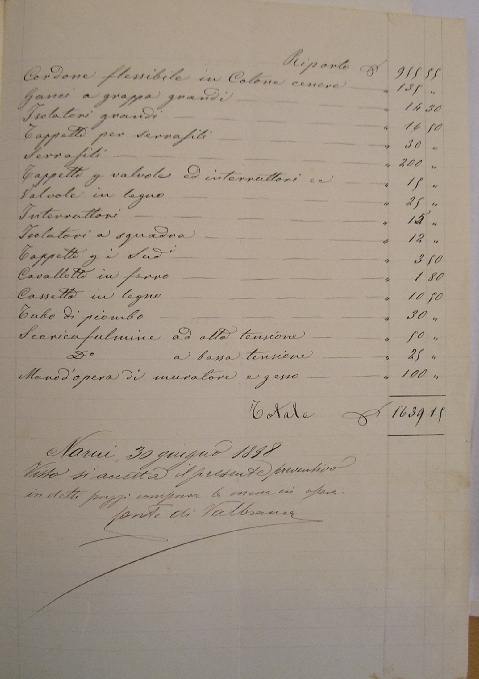 Riporto £ 955 55
Cordone flessibile in Cotone cenere — " 135 "
Ganci a grappa grandi — " 14 30
Isolatori grandi — " 14 50
Tappetti per serrafili — " 30 "
Serrafili — " 200 "
Tappetti p valvole ed interruttori ec " 15 "
Valvole in legno — " 25 "
Interruttori — " 15 "
Isolatori a squadra — " 12 "
Tappetti p i Sudi — " 3 50
Cavalletti in ferro — " 1 80
Cassetta in legno — " 10 50
Tubo di piombo — " 30 "
Scaricafulmine ad alta tensione — " 50 "
Do a bassa tensione — " 25 "
Mano d'opera di muratore e gesso — " 100 "
Totale £ 1639 15
Narni, 30 giugno 1898
Visto si accetta il presente preventivo
in detti prezzi compresa la messa in opera.
Conte di Valbranca